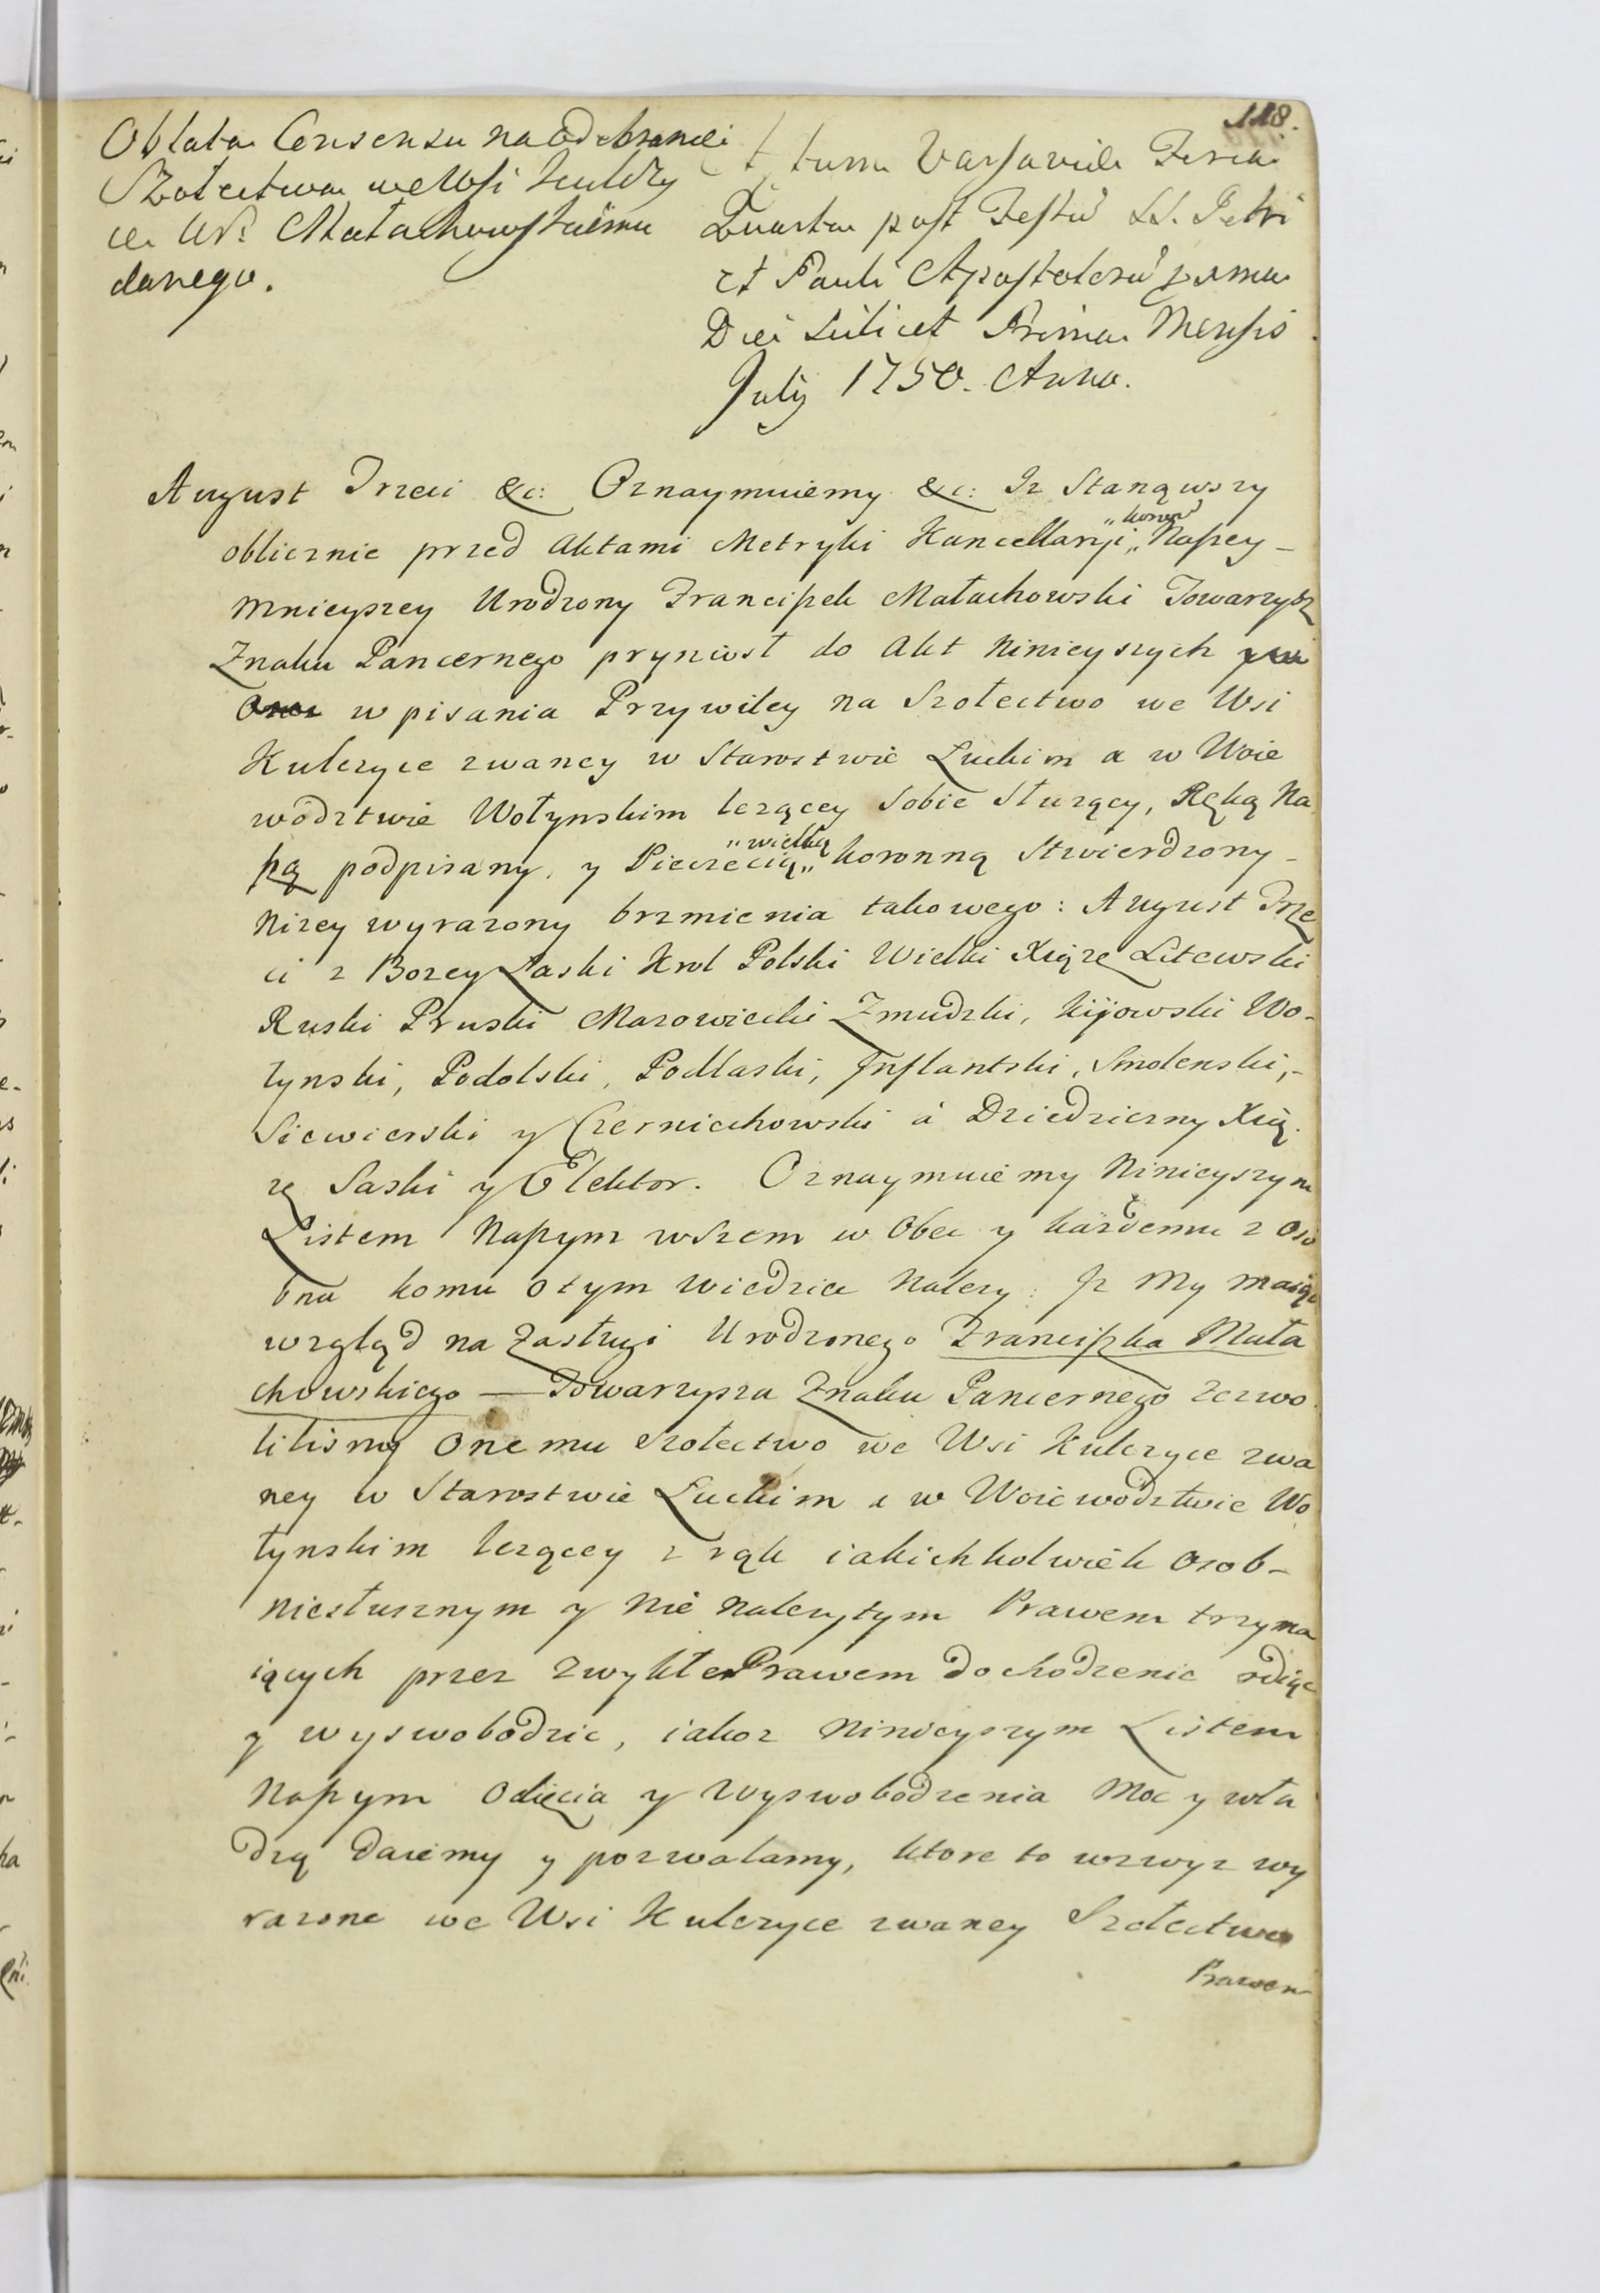 118.
Oblata Consensu na Odebranie
Szołectwa we Wsi Kulczy
ce Ur: Małachowskiemu
danego.
Actum Varsaviae Feria
Quarta post Festu SS. Petri
et Pauli Apostoloru
Die Scilicet Prima Mensis
July 1750. Anno.
August Trzeci &c: Oznaymuiemy &c: Iz Stanąwszy
oblicznie przed Aktami Metryki Kancellaryi „koron" Naszey –
Mnieyszey Urodzony Franciszek Małachowski Towarzysz
Znaku Pancernego pryniosł do Akt Ninieyszych
wpisania Przywiley na Szołectwo we Wsi
Kulczyce zwaney w Starostwie Łuckim a w Woie
wodztwie Wołynskim lezącey Sobie Służący, Ręką Na
szą podpisany, y Pieczęcią „wielką" koronną Stwierdzony –
Nizey wyrazony brzmienia takowego: August Trze
ci z Bozey Łaski Krol Polski Wielki Xiąze Litewski
Ruski Pruski Mazowiecki Zmudzki, Kijowski Wo-
łynski, Podolski, Podlaski, Inflantski, Smolenski, –
Siewierski y Czerniechowski à Dziedziczny Xią.
zę Saski y Elektor. Oznaymuiemy Ninieyszym
Listem Naszym wszem w Obec y każdemu z Oso
bna komu o tym wiedziec Nalezy: Iz My maiąc
wzgląd na Zasługi Urodzonego Franciszka Mała
chowskiego — Towarzysza Znaku Pancernego zezwo
lilismy Onemu Szołectwo we Wsi Kulczyce zwa
ney w Starostwie Łuckim a w Woiewodztwie Wo
łynskim lezącey z rąk iakichkolwiek Osob –
niesłusznym y Nie Nalezytym Prawem trzyma
iących przez zwykłe Prawem dochodzenie odiąc
y wyswobodzic, iakoz Ninieyszym Listem
Naszym Odięcia y Wyswobodzenia Moc y wła
dzą daiemy y pozwalamy, ktore to wzwyz wy
razone we Wsi Kulczyce zwaney Szołectwo
Prawem